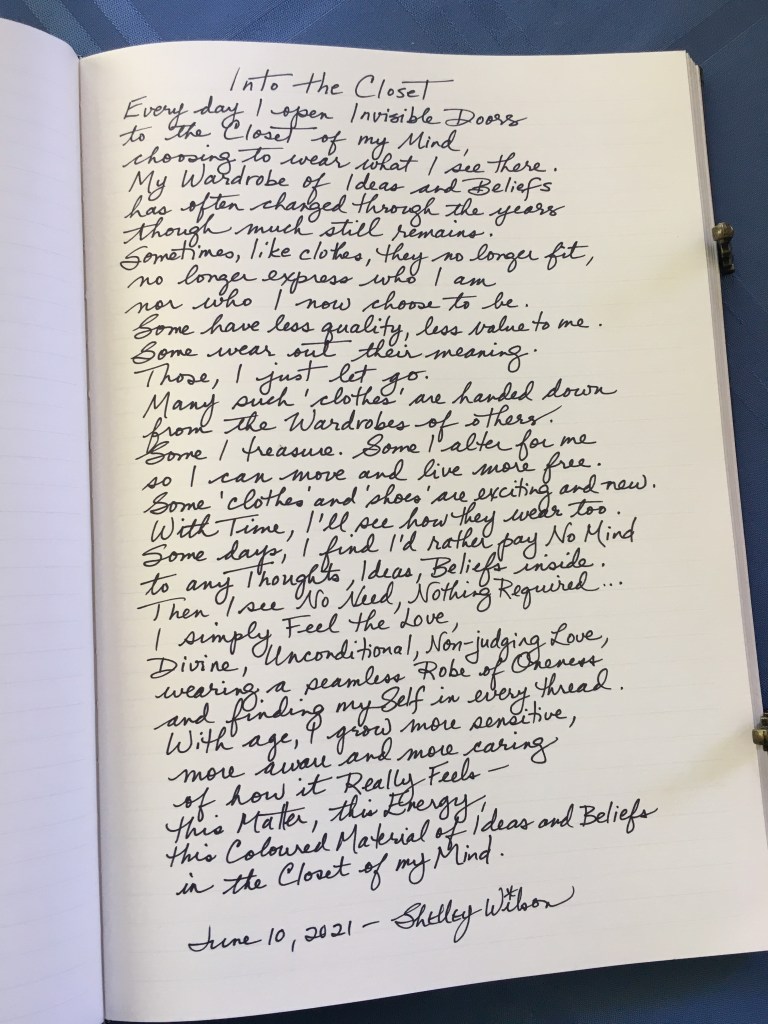 Into the Closet
Every day I open Invisible Doors
to the Closet of my Mind,
choosing to wear what I see there.
My Wardrobe of Ideas and Beliefs
has often changed through the years
though much still remains.
Sometimes, like clothes, they no longer fit,
no longer express who I am
nor who I now choose to be.
Some have less quality, less value to me.
Some wear out their meaning.
Those, I just let go.
Many such 'clothes' are handed down
from the Wardrobes of others.
Some I treasure. Some I alter for me
so I can move and live more free.
Some 'clothes' and 'shoes' are exciting and new.
With Time, I'll see how they wear too.
Some days, I find I'd rather pay No Mind
to any Thoughts, Ideas, Beliefs inside.
Then I see No Need, Nothing Required...
I simply Feel the Love,
Divine, Unconditional, Non-judging Love,
wearing a seamless Robe of Oneness
and finding my Self in every thread.
With age, I grow more sensitive,
more aware and more caring
of how it Really Feels —
this Matter, this Energy,
this Coloured Material of Ideas and Beliefs
in the Closet of my Mind.
June 10, 2021 — Shelley Wilson